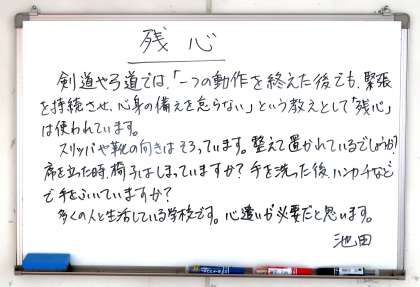 残心
剣道や弓道では、「一つの動作を終えた後でも、緊張
を持続させ、心身の備えを怠らない」という教えとして「残心」
は使われています。
スリッパや靴の向きはそろっています。整えて置かれているでしょうか?
席を立った時、椅子はしまっていますか?手を洗った後、ハンカチなど
で手をふいていますか?
多くの人と生活している学校です。心遣いが必要だと思います。
池田